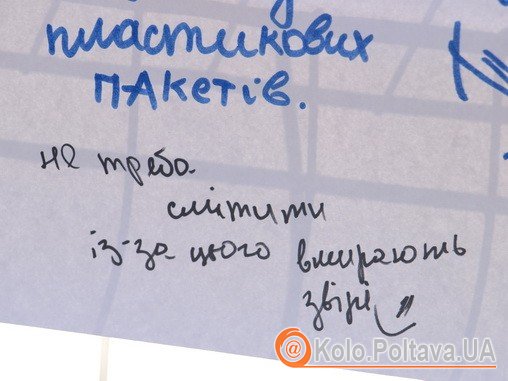 пластикових
пАкетів.
не треба
смітити
із-за цього вмирають
звірі
@ Kolo.Poltava.UA